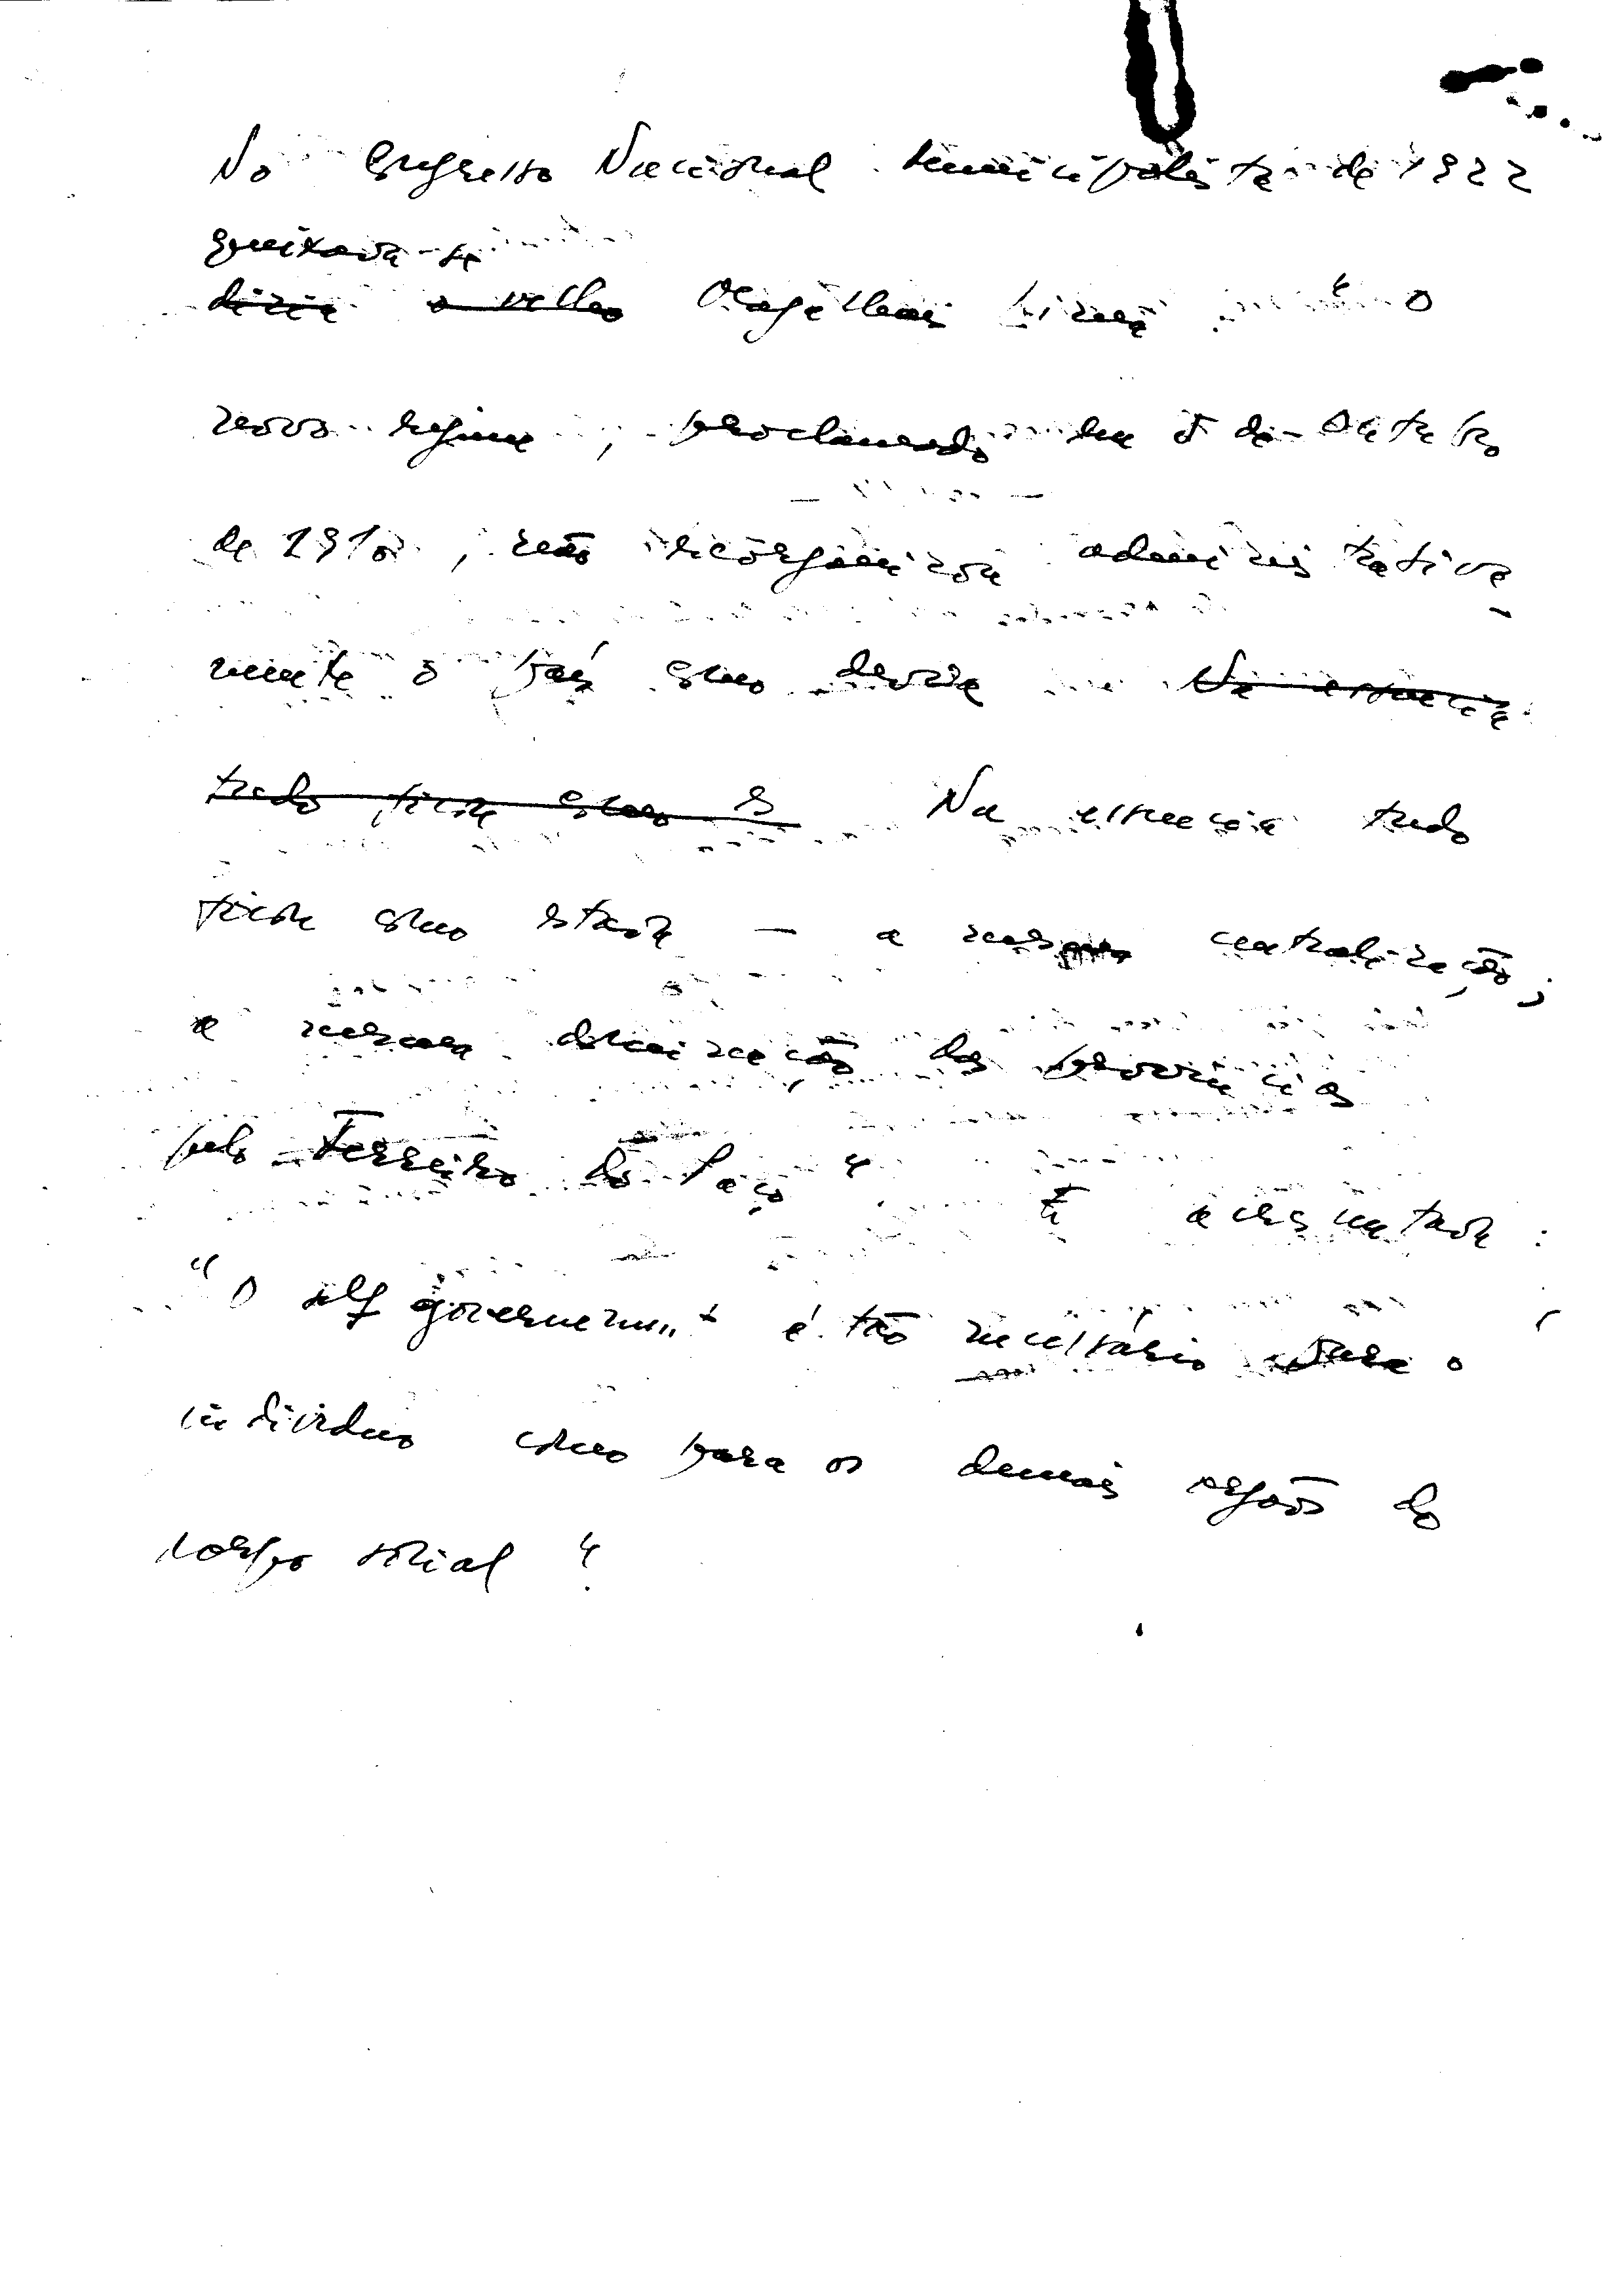 No Congresso Nacional Municipalista de 1922
queixava-se
dizia o velho Magalhães Lima "O
novo regime, proclamado em 5 de Outubro
de 1910, não reorganizou administrativa-
mente o país como devia Na essencia
tudo ficou como e Na essencia tudo
ficou como estava — a mesma centralização;
a mesma dominação das provincias
pelo Terreiro do Paço" E acrescentava:
"O self government é tão necessário para o
individuo como para os demais orgãos do
corpo social"